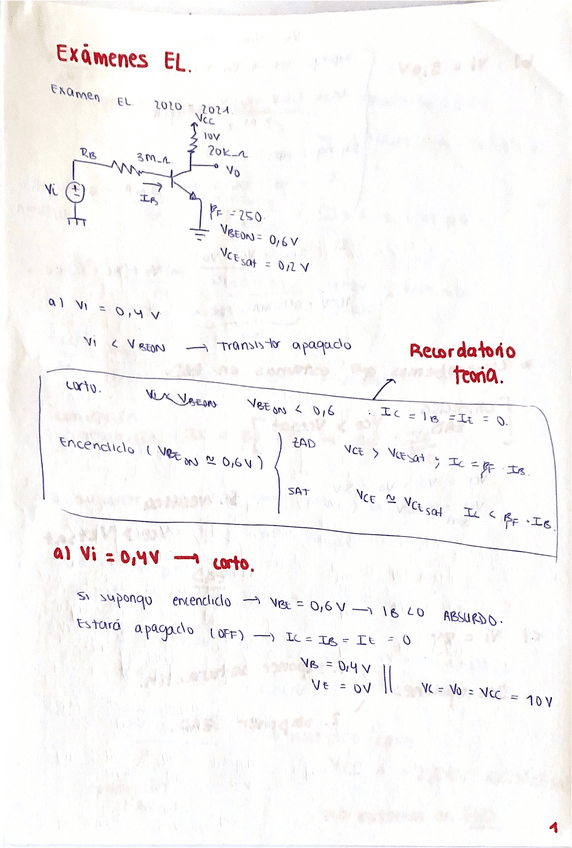 Exámenes EL.
Examen EL 2020 - 2021
Vcc
10V
20K Ω
RB
3M Ω
Vo
Vi
IB
βF = 250
VBEON = 0,6 V
VCEsat = 0,2 V
a) Vi = 0,4 V
Vi < VBEON → Transistor apagado
Recordatorio
teoria.
corto. VBEON VBEON < 0,6 ∴ IC = IB = IE = 0.
Encendido (VBEON ≃ 0,6V)
ZAD VCE > VCEsat ; IC = βF · IB.
SAT VCE ≃ VCEsat IC < βF · IB.
a) Vi = 0,4V → corto.
Si supongo encendido → VBE = 0,6 V → IB < 0 ABSURDO.
Estará apagado (OFF) → IC = IB = IE = 0
VB = 0,4 V
VE = 0V
VC = VO = VCC = 10V
1